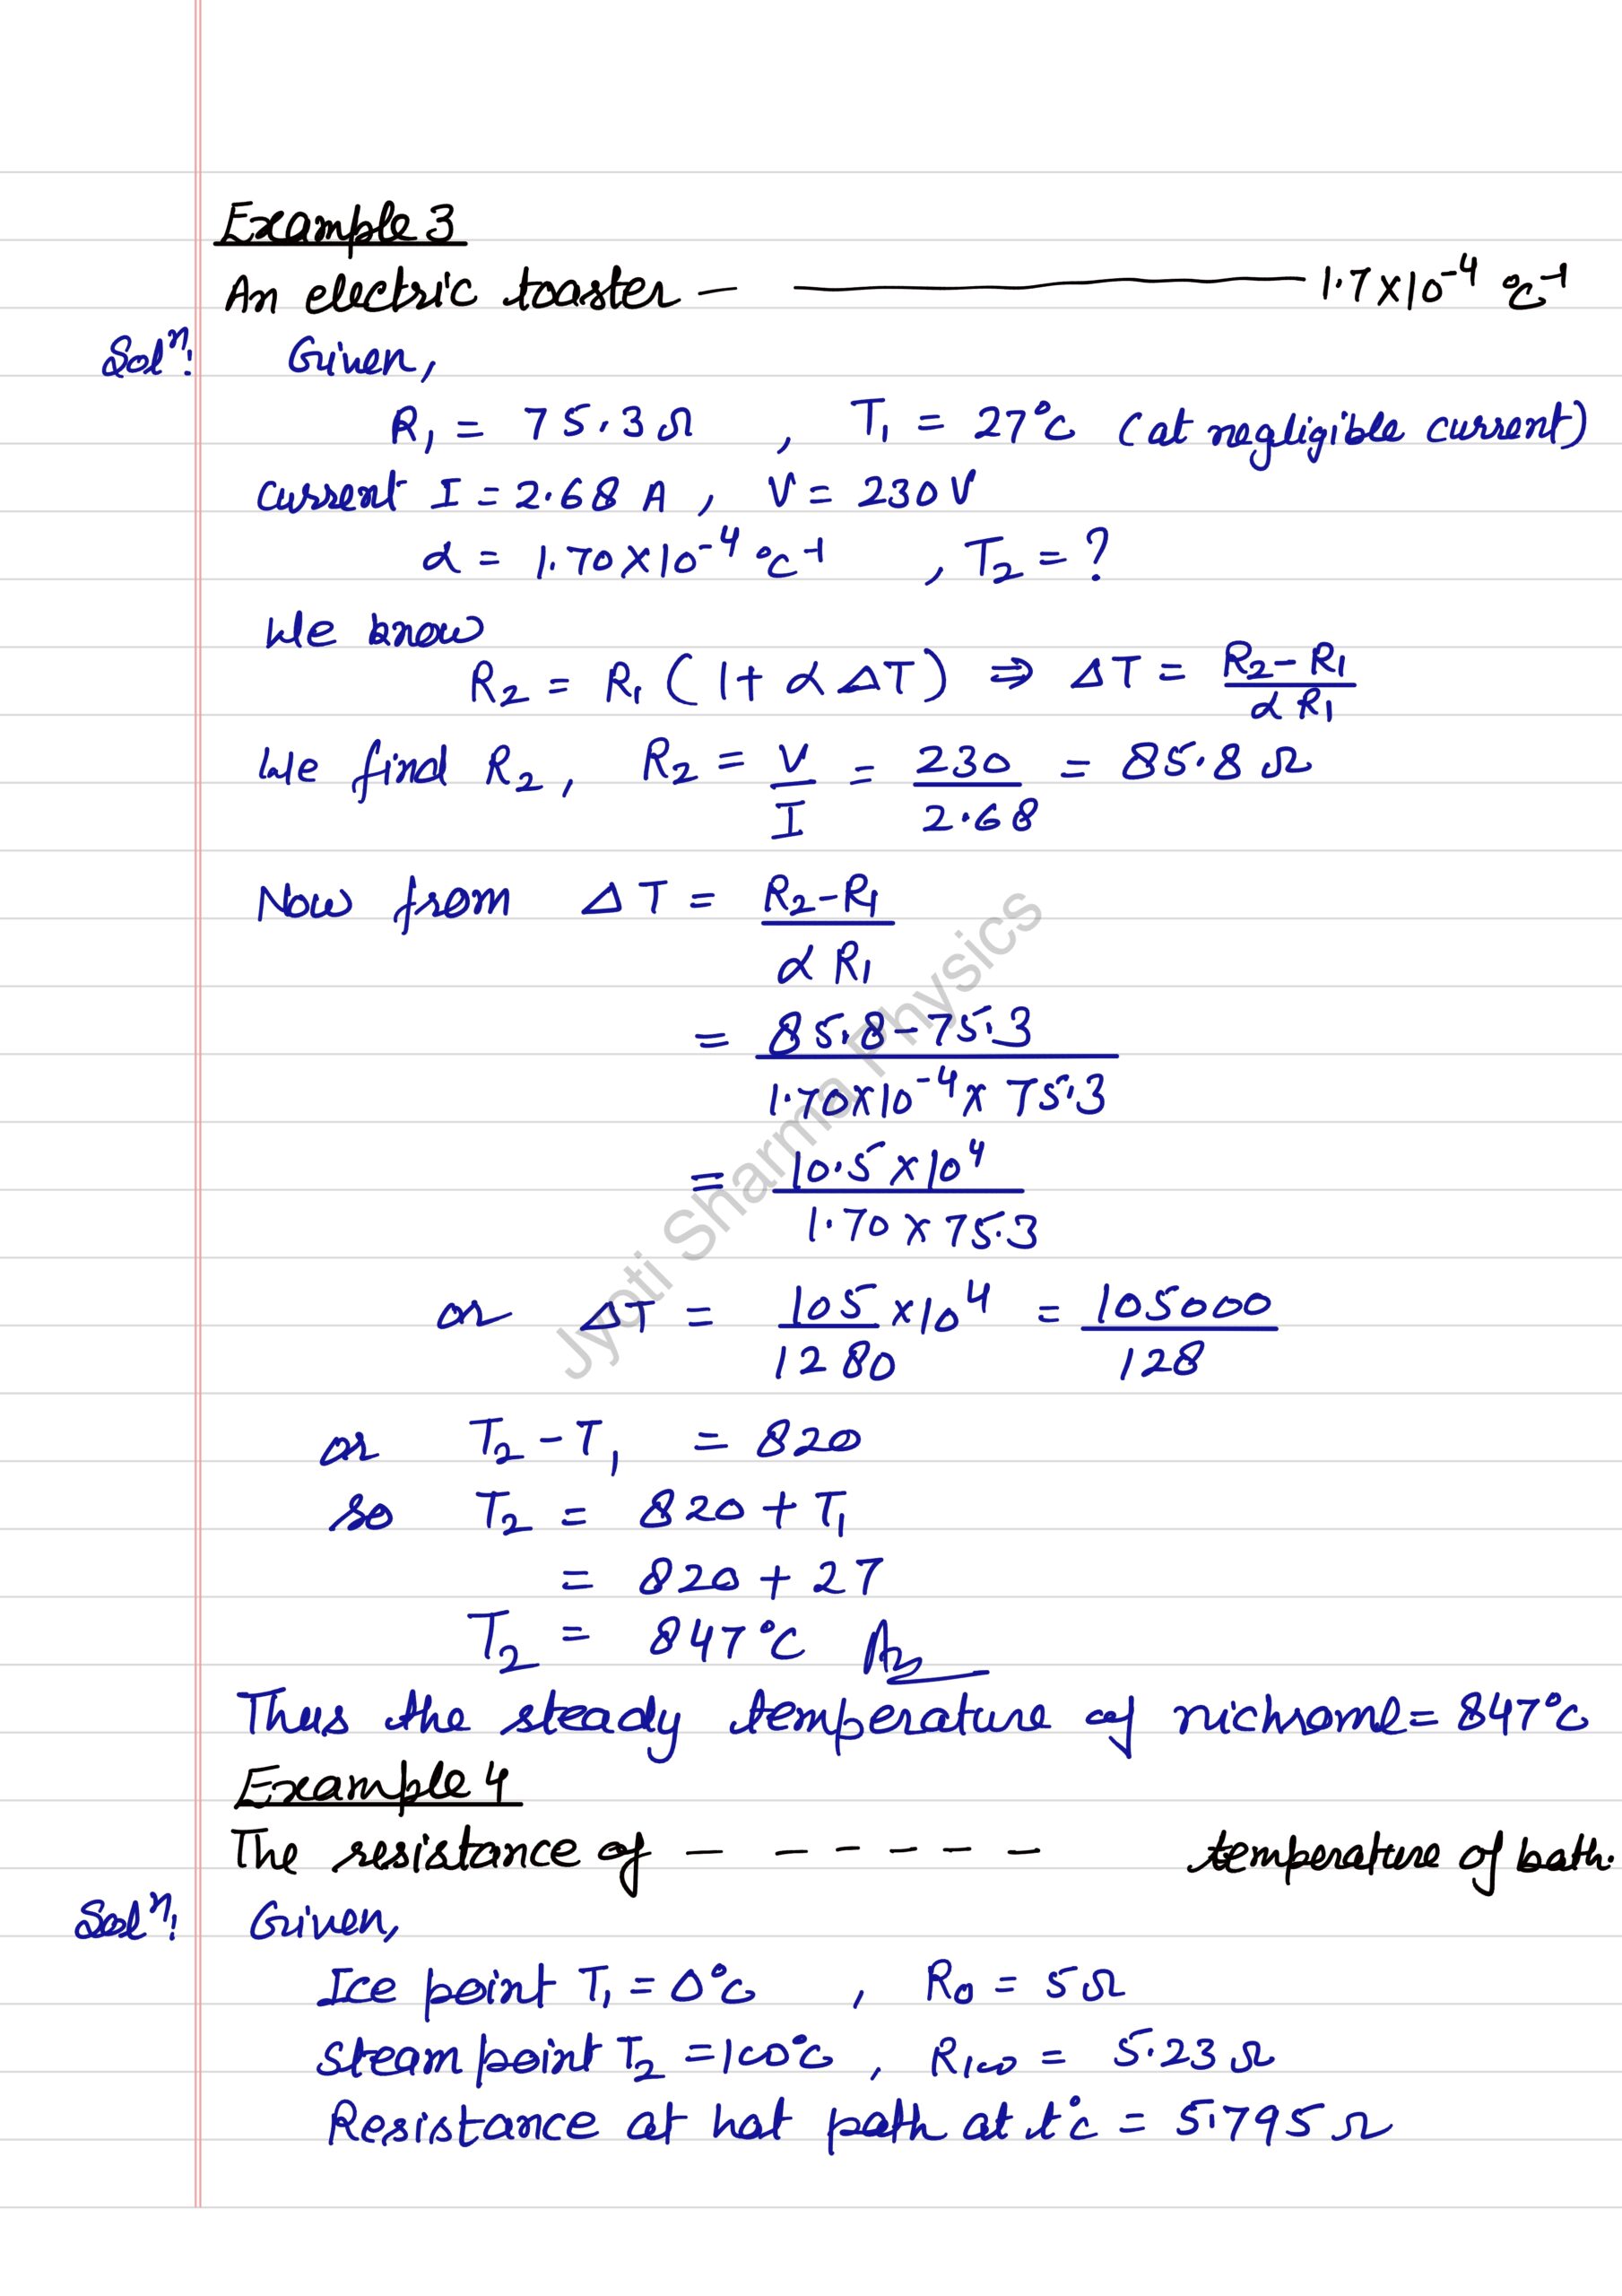 Example 3
An electric toaster — ———— 1.7×10⁻⁴ °c⁻¹
Solⁿ: Given,
R₁ = 75.3 Ω , T₁ = 27°c (at negligible current)
current I = 2.68 A , V = 230 V
α = 1.70×10⁻⁴ °c⁻¹ , T₂ = ?
We know
R₂ = R₁ (1 + α ΔT) ⇒ ΔT = (R₂ - R₁)/(α R₁)
We find R₂, R₂ = V/I = 230/2.68 = 85.8 Ω
Now from ΔT = (R₂ - R₁)/(α R₁)
= (85.8 - 75.3)/(1.70×10⁻⁴ × 75.3)
= (10.5 × 10⁴)/(1.70 × 75.3)
or ΔT = 105/1280 ×10⁴ = 105000/128
or T₂ - T₁ = 820
so T₂ = 820 + T₁
= 820 + 27
T₂ = 847°C Ans
Thus the steady temperature of nichrome = 847°c
Example 4
The resistance of — — - - - - — temperature of bath.
Solⁿ: Given,
Ice point T₁ = 0°c , R₀ = 5 Ω
steam point T₂ = 100°c , R₁₀₀ = 5.23 Ω
Resistance at hot path at t°c = 5.795 Ω
Jyoti Sharma Physics